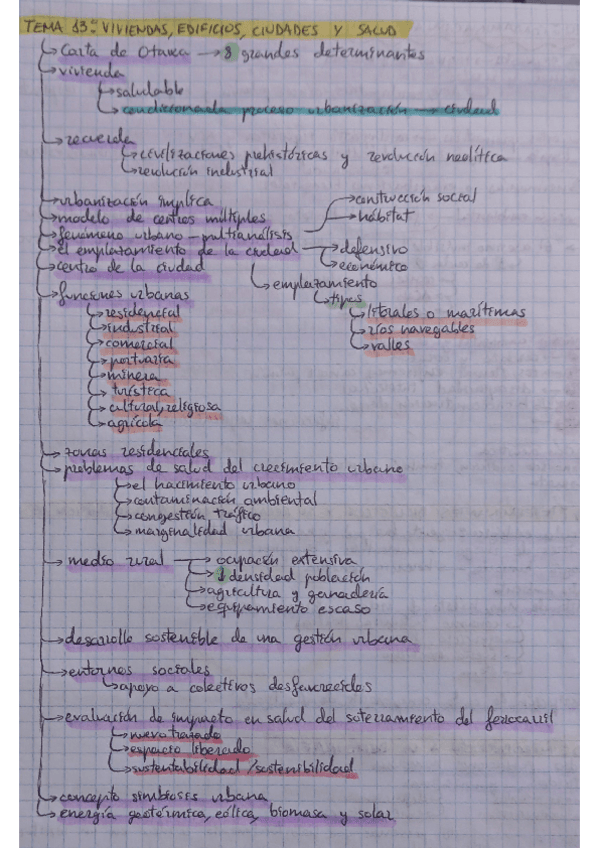 TEMA 13: VIVIENDAS, EDIFICIOS, CIUDADES Y SALUD
Carta de Otawa → 8 grandes determinantes
vivienda
saludable
condicionada proceso urbanización → ciudad
recuerda
civilizaciones prehistóricas y revolución neolítica
revolución industrial
urbanización implica
modelo de centros múltiples
fenómeno urbano - multianálisis
construcción social
hábitat
el emplazamiento de la ciudad
defensivo
económico
centro de la ciudad
emplazamiento
tipos
litorales o marítimas
ríos navegables
valles
funciones urbanas
residencial
industrial
comercial
portuaria
minera
turística
cultural, religiosa
agrícola
zonas residenciales
problemas de salud del crecimiento urbano
el hacimiento urbano
contaminación ambiental
congestión tráfico
marginalidad urbana
medio rural
ocupación extensiva
↓ densidad población
agricultura y ganadería
equipamiento escaso
desarrollo sostenible de una gestión urbana
entornos sociales
apoyo a colectivos desfavorecidos
evaluación de impacto en salud del soterramiento del ferrocarril
nuevo trazado
espacio liberado
sustentabilidad/sostenibilidad
concepto simbiosis urbana
energía geotérmica, eólica, biomasa y solar